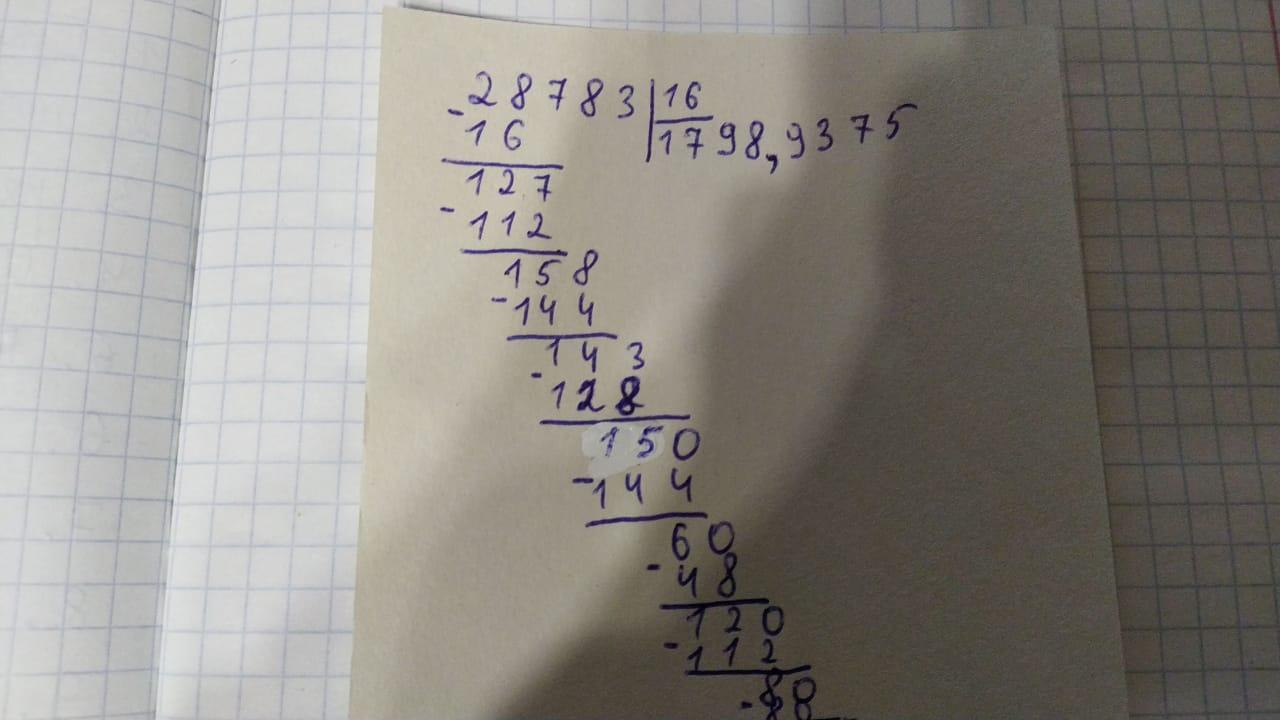 - 28783 | 16
16 | 1798,9375
127
- 112
158
- 144
143
- 128
150
- 144
60
- 48
120
- 112
80
- 80